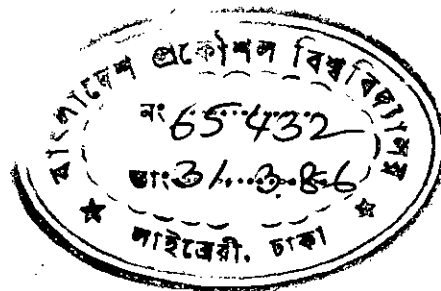 বাংলাদেশ প্রকৌশল বিশ্ববিদ্যালয়
নং 65432
তাং 31.3.86
লাইব্রেরী, ঢাকা